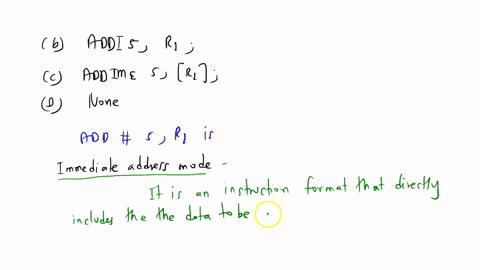 (b) ADDI 5, R1;
(c) ADDIME 5, [R1];
(d) None
ADD # 5, R1 is
Immediate address mode -
It is an instruction format that directly
includes the the data to be